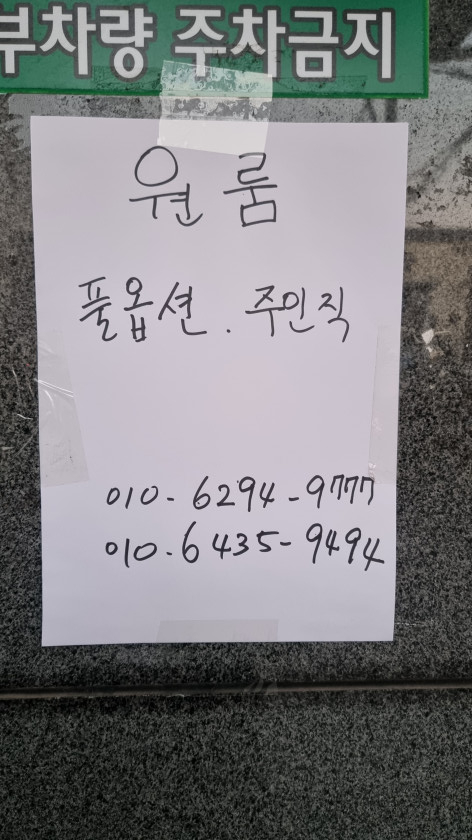 부차량 주차금지
원룸
풀옵션. 주인직
010-6294-9777
010-6435-9494